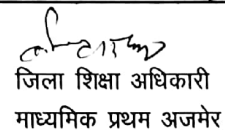 जिला शिक्षा अधिकारी
माध्यमिक प्रथम अजमेर